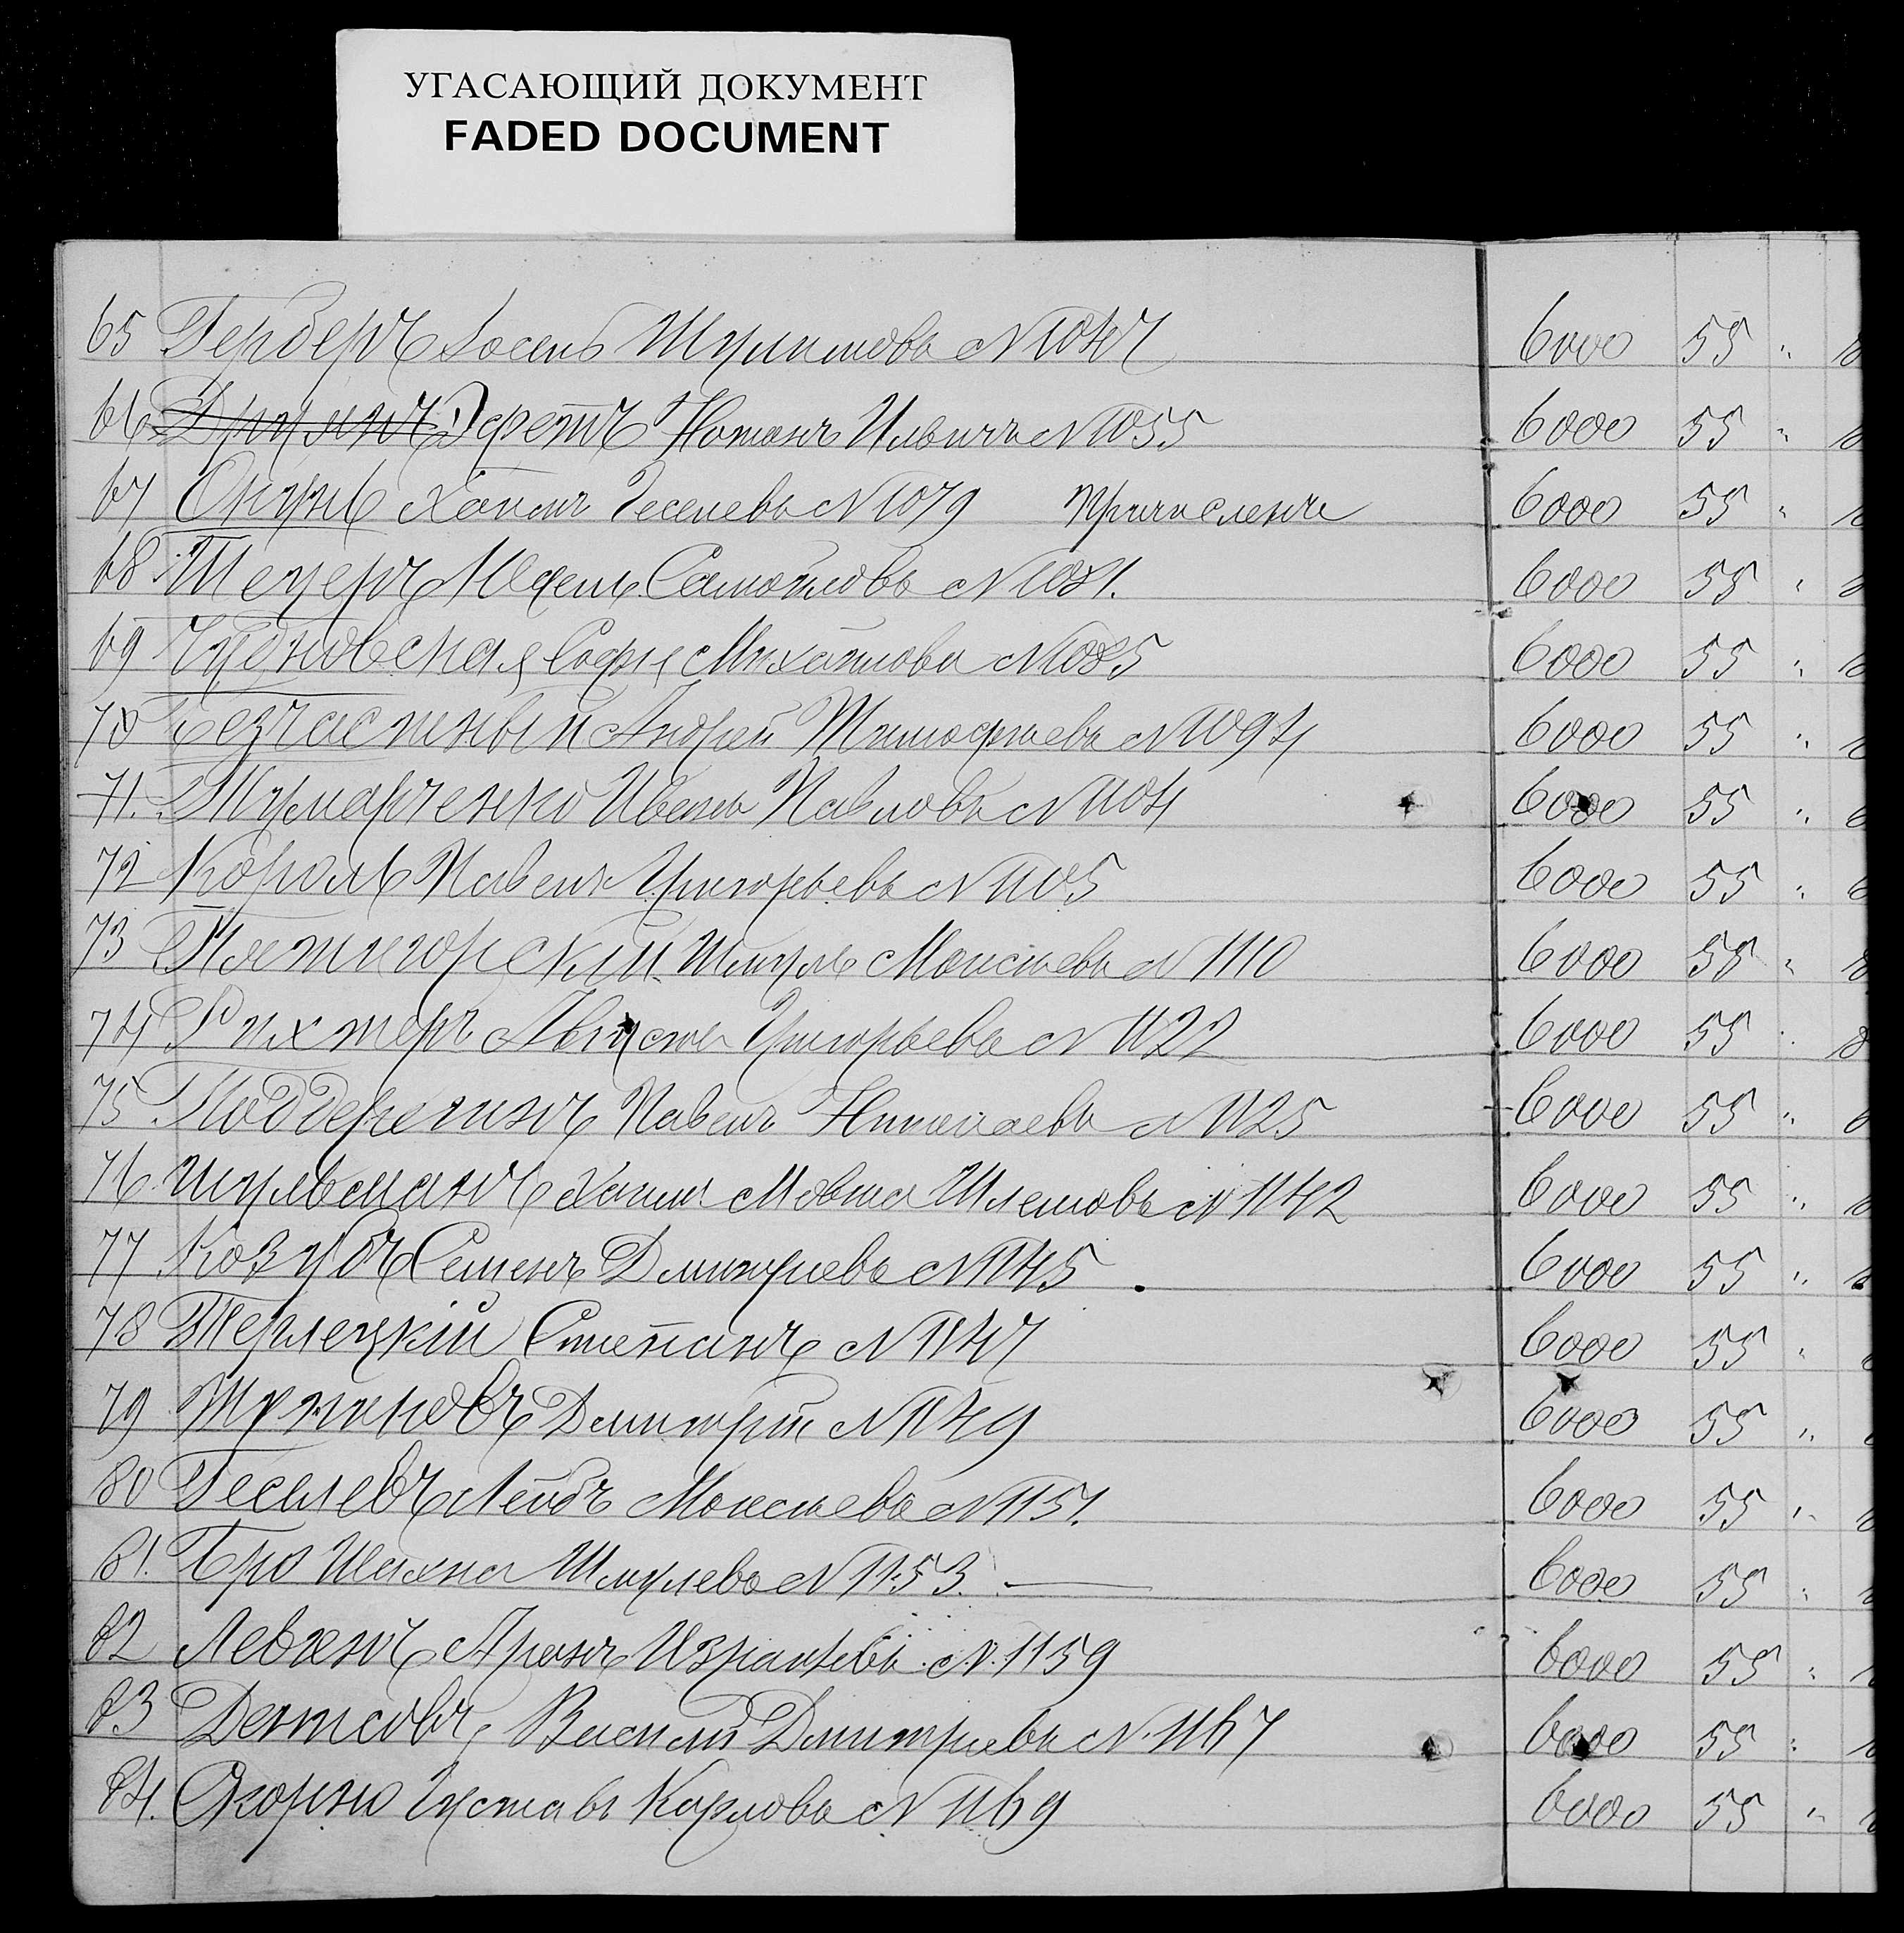 УГАСАЮЩИЙ ДОКУМЕНТ
FADED DOCUMENT
65 Герберъ Іосель Шулимовъ № 1047 6000 55 "
66 Эфетъ Нотонъ Ильичъ № 1055 6000 55 "
67 Окунь Хаимъ Іоселевъ № 1079 Причисленъ 6000 55 "
68 Самойловъ № 1081. 6000 55 "
69 Чудновская Софія Михайлова № 1085 6000 55 "
70 Безчастный Андрей Тимофѣевъ № 1094 6000 55 "
71. Иванъ Павловъ № 1104 6000 55 "
72 Король Павелъ Григорьевъ № 1105 6000 55 "
73 Пятигорскій Шмуль Моисѣевъ № 1110 6000 55 "
74 Рихтеръ Августъ Григорьевъ № 1122 6000 55 "
75 Поддерегинъ Павелъ Николаевъ № 1125 6000 55 "
76 Шульманъ Хаимъ Мовша Шлемовъ № 1142 6000 55 "
77 Козубъ Семенъ Дмитріевъ № 1145 6000 55 "
78 Терлецкій Степанъ № 1147 6000 55 "
79 Тумановъ Дмитрій № 1149 6000 55 "
80 Геселевъ Лейбъ Моисѣевъ № 1151. 6000 55 "
81. Бро Шахна Шмулевъ № 1153. 6000 55 "
82 Левянъ Аронъ Израилевъ № 1159 6000 55 "
83 Денисовъ Василій Дмитріевъ № 1167 6000 55 "
84. Густавъ Карловъ № 1169 6000 55 "